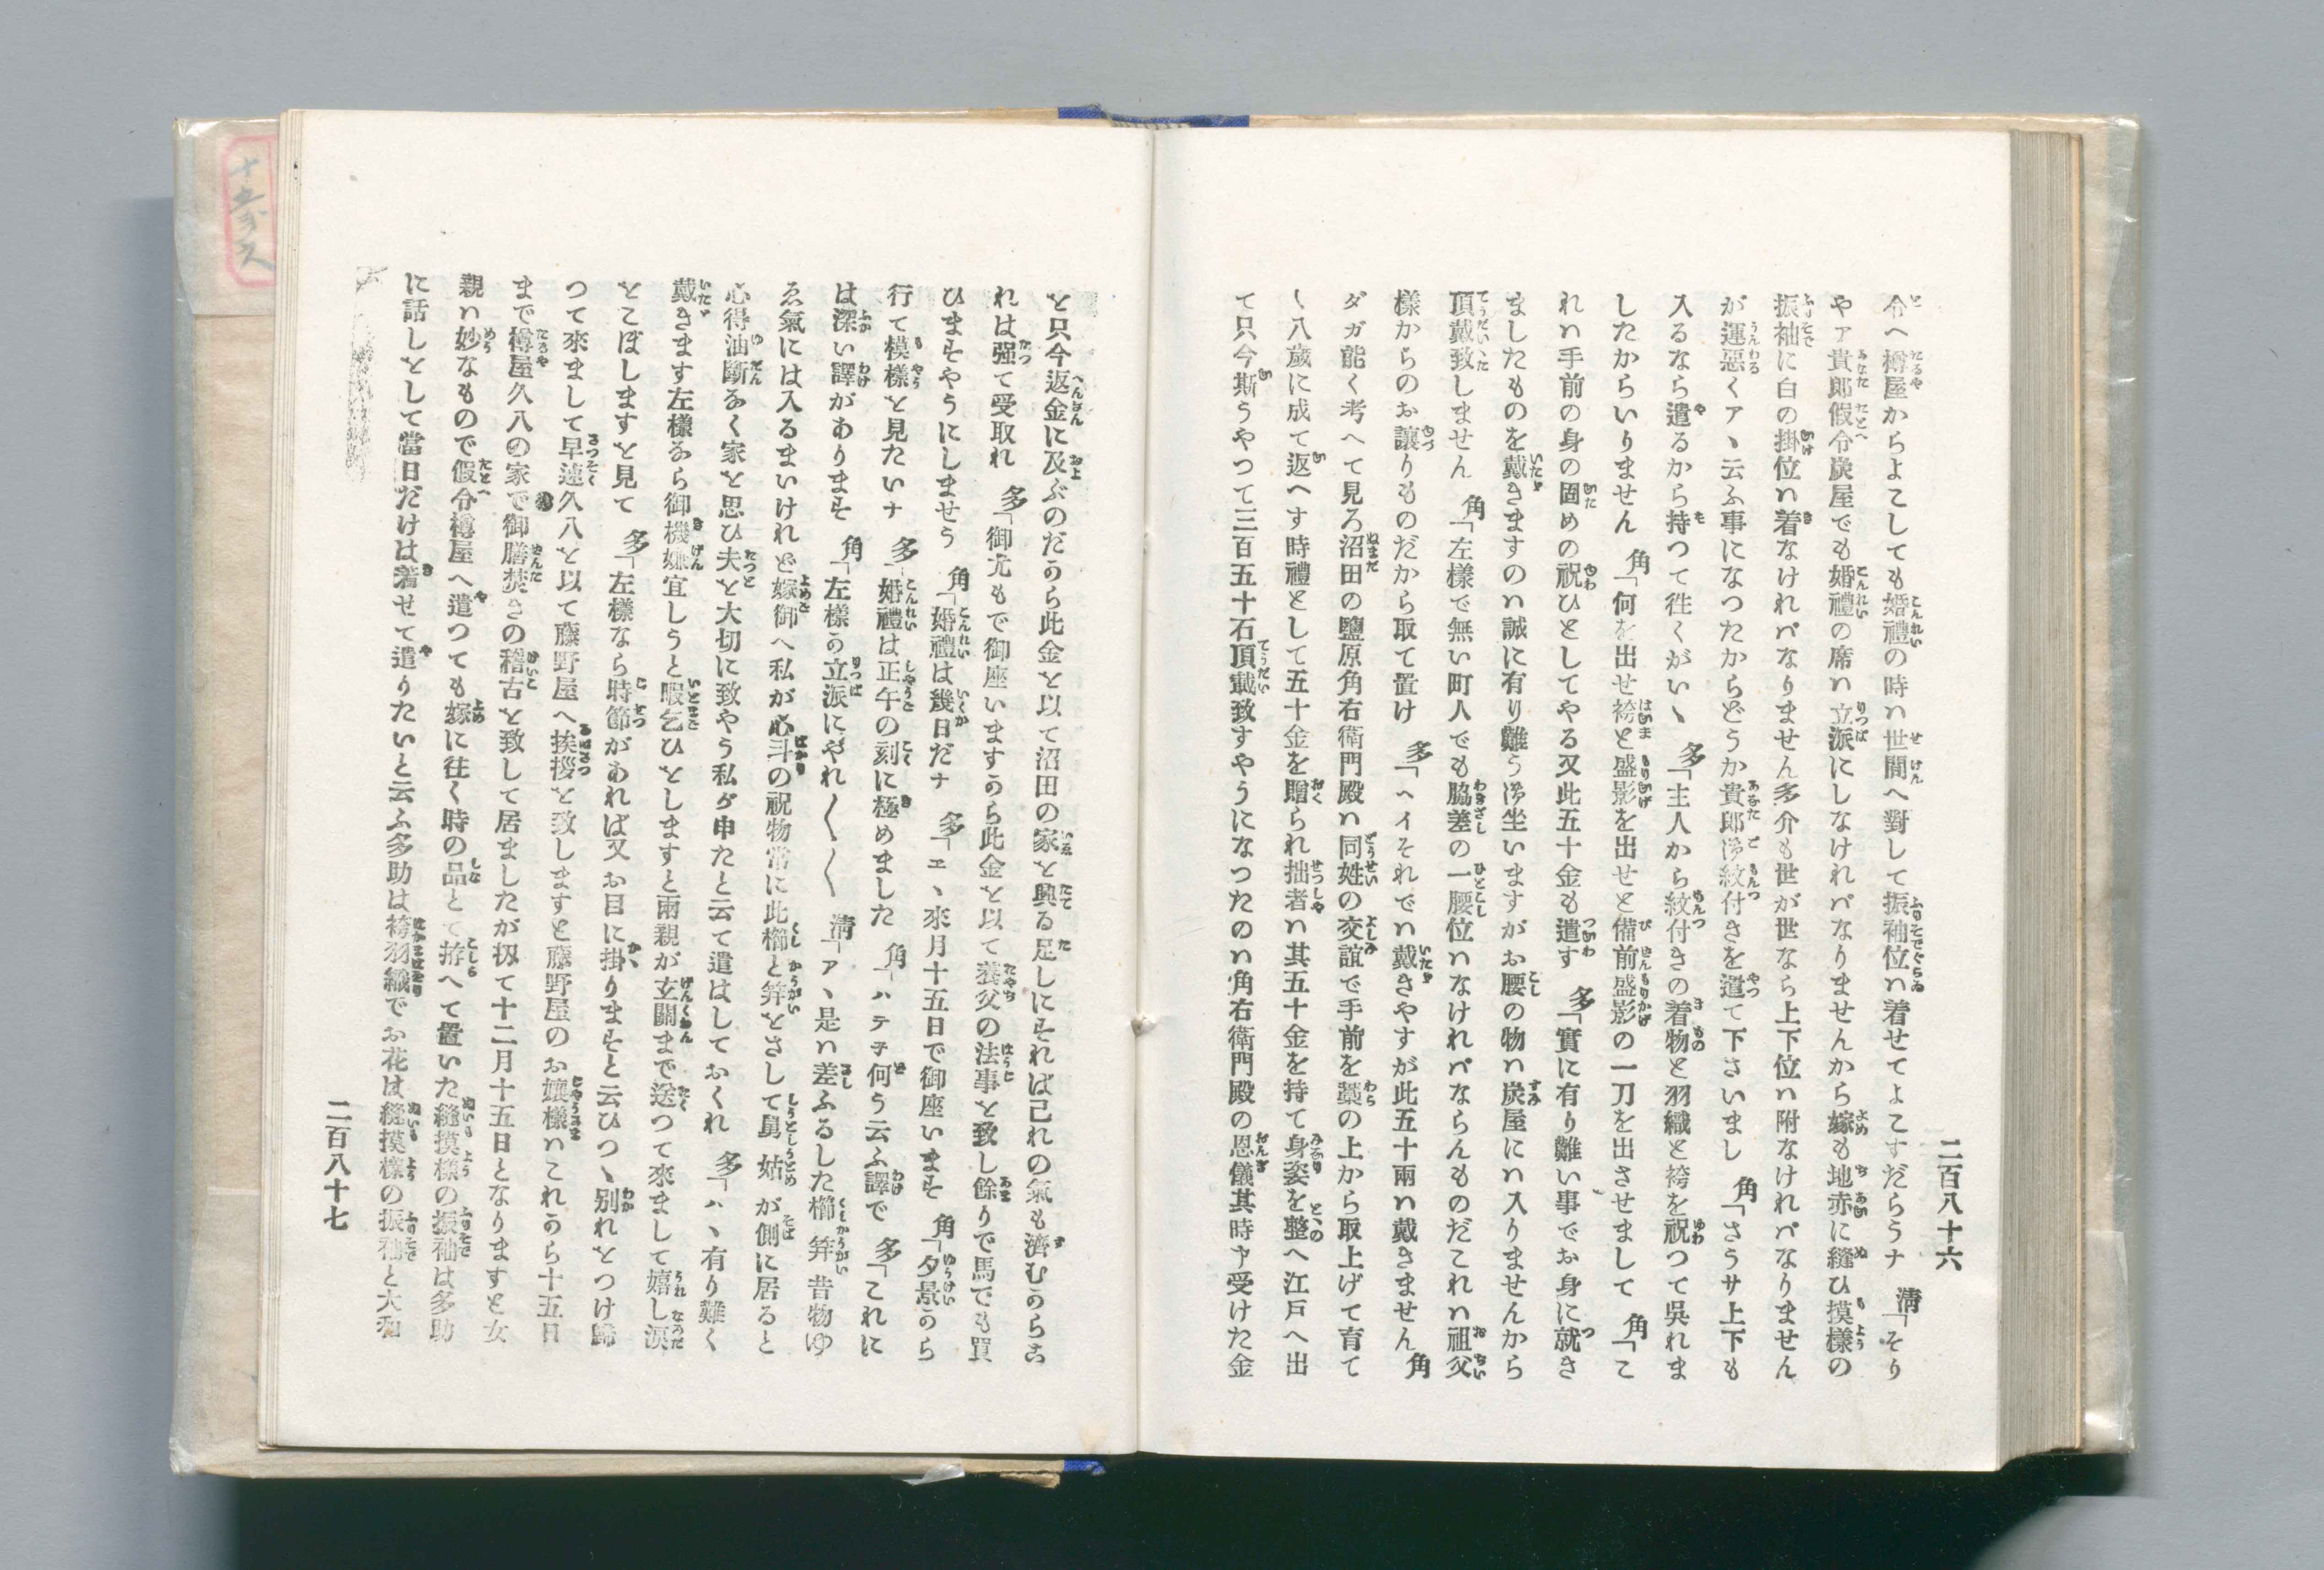 二百八十六
令へ樽屋からよこしても婚禮の時ハ世間へ對して振袖位ハ着せてよこすだらうナ 淸「そり
やア貴郎假令炭屋でも婚禮の席ハ立派にしなけれバなりませんから嫁も地赤に縫ひ摸樣の
振袖に白の掛位ハ着なけれバなりません多介も世が世なら上下位ハ附なけれバなりません
が運惡くアヽ云ふ事になつたからどうか貴郎御紋付きを遣て下さいまし 角「さうサ上下も
入るなら遣るから持つて徃くがいヽ 多「主人から紋付きの着物と羽織と袴を祝つて呉れま
したからいりません 角「何を出せ袴と盛影を出せと備前盛影の一刀を出させまして 角「こ
れハ手前の身の固めの祝ひとしてやる又此五十金も遣す 多「實に有り難い事でお身に就き
ましたものを戴きますのハ誠に有り難う御坐いますがお腰の物ハ炭屋にハ入りませんから
頂戴致しません 角「左樣で無い町人でも脇差の一腰位ハなけれバならんものだこれハ祖父
樣からのお讓りものだから取て置け 多「ヘイそれでハ戴きやすが此五十兩ハ戴きません 角
ダガ能く考へて見ろ沼田の鹽原角右衛門殿ハ同姓の交誼で手前を藁の上から取上げて育て
〱八歲に成て返へす時禮として五十金を贈られ拙者ハ其五十金を持て身姿を整へ江戸へ出
て只今斯うやつて三百五十石頂戴致すやうになつたのハ角右衛門殿の恩儀其時ヤ受けた金
と只今返金に及ぶのだから此金と以て沼田の家と興る足しにそれば己れの氣も濟むから去
れは强て受取れ 多「御尤もで御座いますから此金と以て養父の法事と致し餘りで馬でも買
ひまそやうにしませう 角「婚禮は幾日だナ 多「エヽ來月十五日で御座いまそ 角「夕景から
行て模樣と見たいナ 多「婚禮は正午の刻に極めました 角「ハテ子何う云ふ譯で 多「これに
は深い譯がありまそ 角「左樣か立派にやれ〱〱 淸「アヽ是ハ差ふるした櫛笄昔物ゆ
ゑ氣には入るまいけれど嫁御へ私が心斗の祝物常に此櫛と笄とさして舅姑が側に居ると
心得油斷なく家と思ひ夫と大切に致やう私が申たと云て遣はしておくれ 多「ハヽ有り難く
戴きます左樣なら御機嫌宜しうと暇乞ひとしますと兩親が玄關まで送つて來まして嬉し淚
とこぼしますと見て 多「左樣なら時節があれば又お目に掛りまそと云ひつヽ別れとつけ歸
つて來まして早速久八と以て藤野屋へ挨拶と致しますと藤野屋のお孃樣ハこれから十五日
まで樽屋久八の家で御膳焚きの稽古と致して居ましたが扨て十二月十五日となりますと女
親ハ妙なもので假令樽屋へ遣つても嫁に往く時の品とて拵へて置いた縫摸樣の振袖は多助
に話しとして當日だけは着せて遣りたいと云ふ多助は袴羽織でお花は縫摸樣の振袖と大和
二百八十七